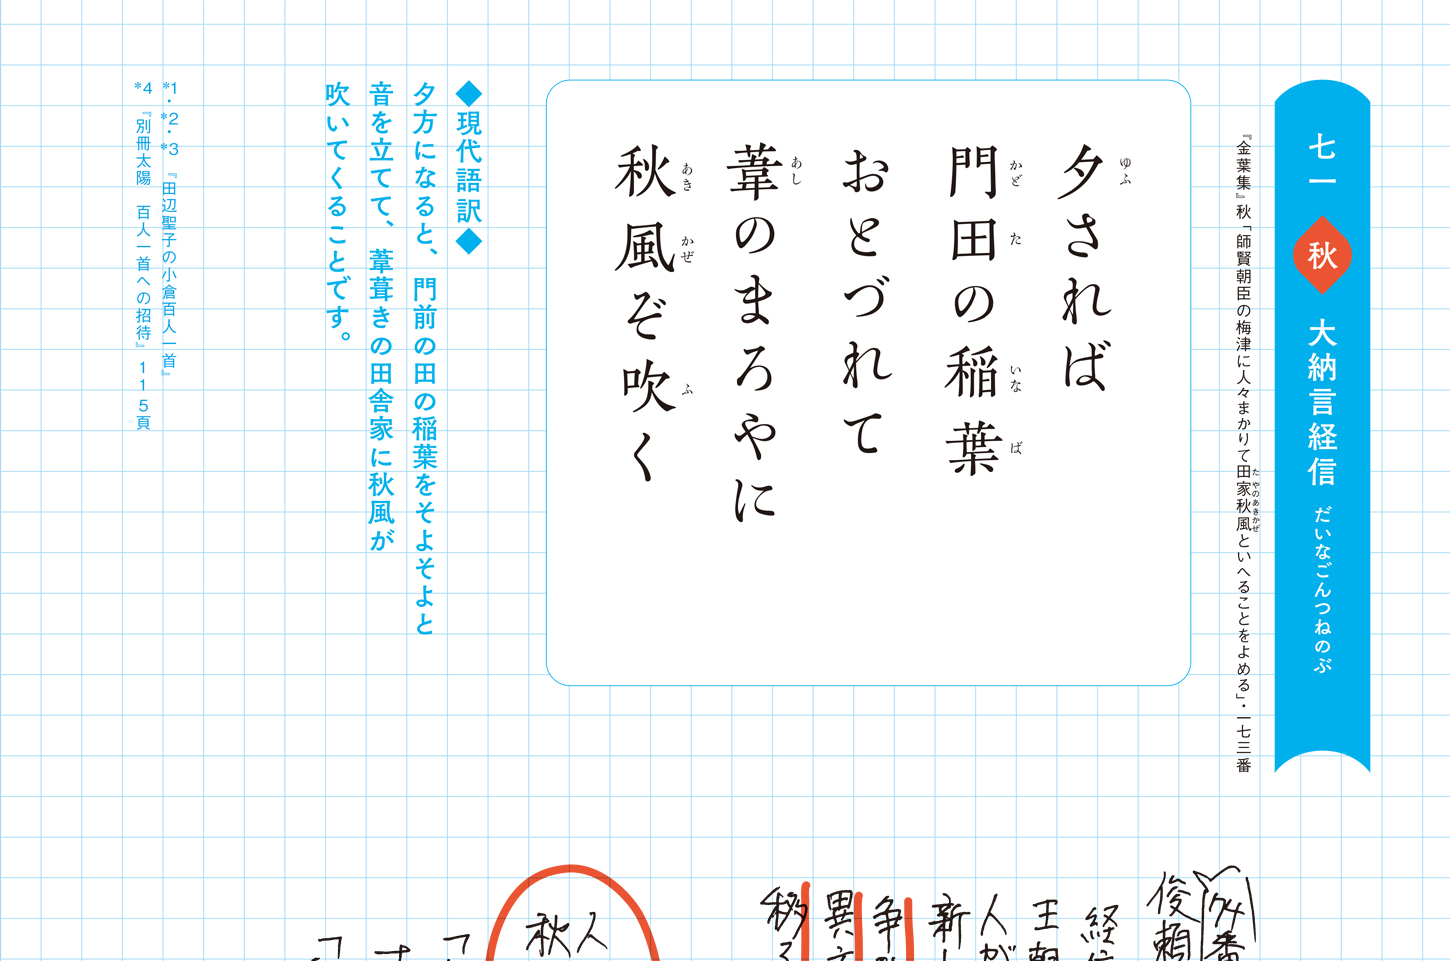 七一 秋 大納言経信 だいなごんつねのぶ
『金葉集』秋「師賢朝臣の梅津に人々まかりて田家秋風といへることをよめる」・一七三番
たやのあきかぜ
夕されば
ゆふ
門田の稲葉
かど た いな ば
おとづれて
葦のまろやに
あし
秋風ぞ吹く
あき かぜ ふ
◆現代語訳◆
夕方になると、門前の田の稲葉をそよそよと
音を立てて、葦葺きの田舎家に秋風が
吹いてくることです。
*1・*2・*3 『田辺聖子の小倉百人一首』
*4 『別冊太陽 百人一首への招待』115頁
俊頼
経信
王朝
人が
新し
争
異
移る
人
秋